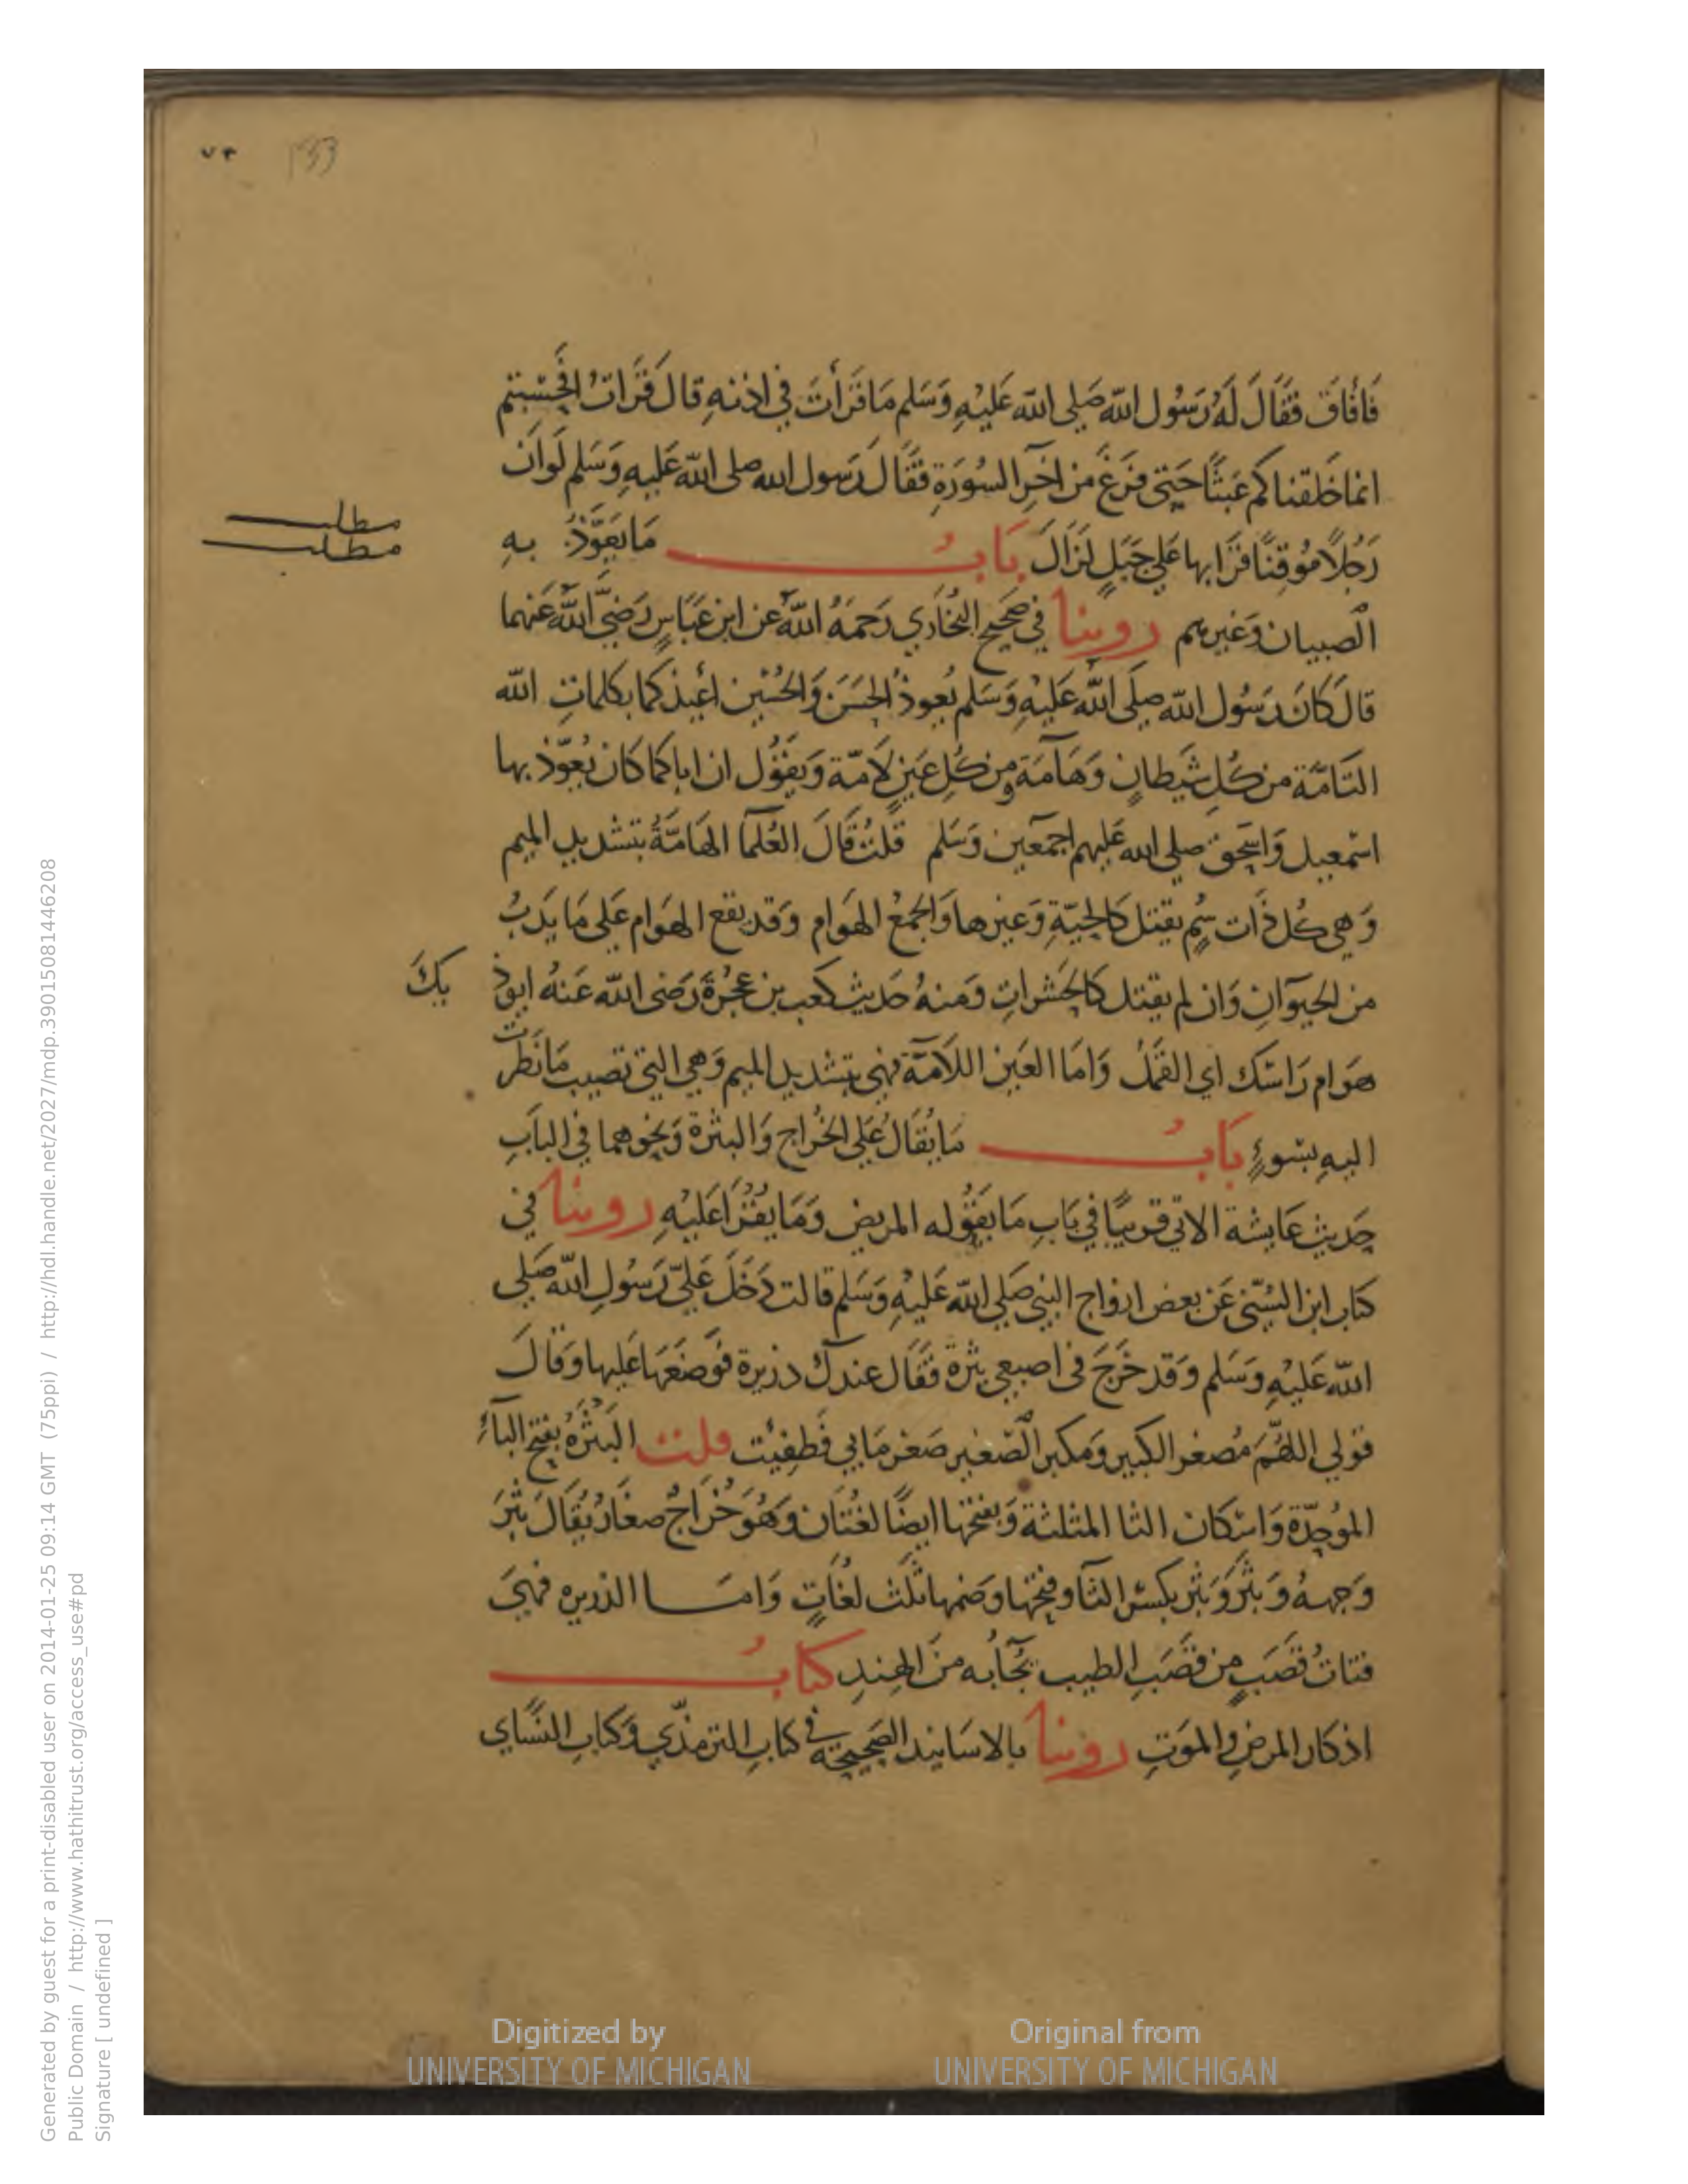 ٧٣ 133
فَأفَاقَ فقَالَ لَهُ رَسُول اللّه صَلى اللّه عَليْهِ وَسَلم مَا قرَأتَ في اذنهِ قالَ قرَات افحَسبتم
انما خَلقناكم عَبثًا حَتى فرَغ من اخرِ السُورَةِ فقَالَ رَسول الله صلى اللّه عَليهِ وَسَلم لَوان
رَجُلًا مُوقِنًا قرَا بها عَلي جَبَلٍ لزَالَ بَابُ مَا يعَوَّذُ بهِ
مطلب
مطلب
الصبيان وَغيرهم روينا في صَحيح البُخَاري رَحمَهُ اللّه عن ابن عَبَاسٍ رَضيَ اللّه عَنهما
قالَ كانَ رَسُول اللّه صلَى اللّه عَليْهِ وَسَلم يُعوذُ الحسَنَ وَالحُسَين اعُيذكما بكلماتِ اللّه
التَامَّة من كُلِ شيَطانٍ وَهَامّة ومن كُلِ عَينٍ لَامّة وَيقوُل ان اباكما كان يُعَوّذ بها
اسْمعيل وَاسحَق صلي الله عَليهم اجمَعين وَسَلم قلتُ قَالَ العُلمَا الهَامَّةُ بتشديدِ الميم
وَهي كُل ذَات سُمٍ يقتل كالحيّةِ وَغيرها وَالجمعُ الهَوام وقد يقع الهَوام عَلى مَا يدَبُ
من الحيَوانِ وَان لم يقتل كالحَشراتِ وَمنهُ حَديث كعب بن عجُرةَ رَضي اللّه عَنهُ ايوذ يكَ
هوَام رَاسَك اي القَملُ وَامَا العَين اللامّة فهي بتشديدِ الميم وَهي التي تصيب مَا نظَرت
اليهِ بسُوءٍ بَابُ مَا يُقَالُ عَلي الخُراج وَالبثرة وَنحوهما في البَابِ
حَديث عَايشة الاتي قريبًا في بَابِ مَا يقوُله المريض وَمَا يقُرَا عَليْهِ روينا في
كتاب ابن السُنّي عَن بعض ازواج النبي صَلي اللّه عَليْهِ وَسَلم قالت دَخَلَ عَليّ رَسُول اللّه صَلي
اللّه عَليْهِ وسَلم وَقد خَرجَ في اصبعي بثرة فقَال عندك ذريرة فوَضعَهَا عَليها وَقالَ
قولي اللهُمّ مُصغر الكبير وَمكبر الصّغير صَغر مَا بي فَطفِئت قلت البَثْرَةُ بفتح البَاءِ
الموُحدّة وَاسكان الثا المثلثة وَبفتحها ايضًا لغُتان وَهُوَ خُرَاجٌ صغَار يُقَالَ بثِرَ
وَجههُ وَبثَر وَبثُر بكسر الثَا وفتحها وَضمها ثلث لغُاتٍ وَامَا الذريره فهيَ
فتاتُ قصَبٍ من قصَب الطيب يجُابه منَ الهندِ كتابُ
اذكار المرض والموَتِ روينا بالاسَانيد الصَحيحة في كتابِ الترمذّي وَكتابِ النسَاي
Generated by guest for a print-disabled user on 2014-01-25 09:14 GMT (75ppi) / http://hdl.handle.net/2027/mdp.39015081446208
Public Domain / http://www.hathitrust.org/access_use#pd
Signature [ undefined ]
Digitized by
UNIVERSITY OF MICHIGAN
Original from
UNIVERSITY OF MICHIGAN